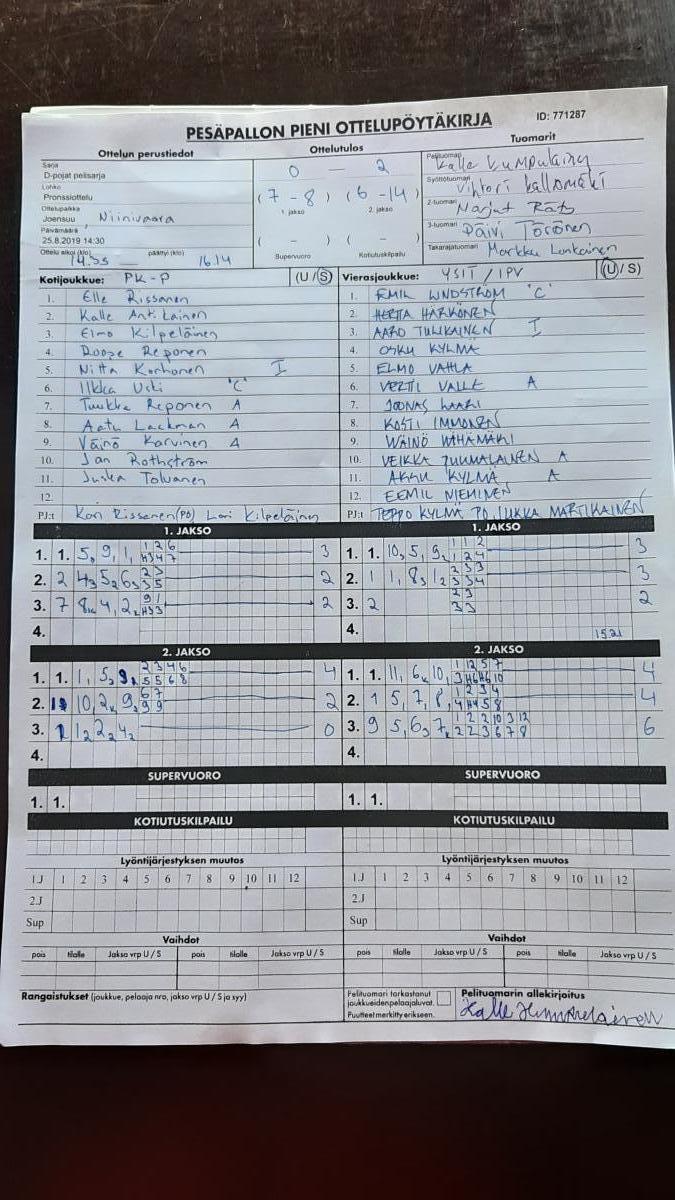 PESÄPALLON PIENI OTTELUPÖYTÄKIRJA
ID: 771287
Ottelun perustiedot
Sarja
D-pojat pelisarja
Lohko
Pronssiottelu
Ottelupaikka
Joensuu, Niinivaara
Päivämäärä
25.8.2019 14:30
Ottelu alkoi (klo) 14.35 päättyi (klo) 16.14
Ottelutulos
0 — 2
(7 - 8) (6 - 14)
1. jakso 2. jakso
( - ) ( - )
Supervuoro Kotiutuskilpailu
Tuomarit
Pelituomari Kalle
Syöttötuomari Vihtori Kallomäki
2-tuomari Marjut
3-tuomari Päivi Törönen
Takarajatuomari Markku Lonkainen
Kotijoukkue: PK-P (U / S)
1. Elle Rissanen
2. Kalle Antikainen
3. Elmo Kilpeläinen
4. Roope Reponen
5. Niitta Korhonen I
6. Ilkka Uski "C"
7. Tuukka Reponen A
8. Aatu Lackman A
9. Väinö Karvinen A
10. Jan Rothström
11. Juska Tolvanen
12.
PJ:t Kari Rissanen (PO) Lari Kilpeläinen
Vierasjoukkue: YSIT / IPV (U / S)
1. EMIL LINDSTRÖM 'C'
2. HERTTA HÄRKÖNEN
3. AARO TULIKAINEN I
4. OSKU KYLMÄ
5. ELMO VATLA
6. VERTTI VALLE A
7. JOONAS LAARI
8. KOSTI IMMONEN
9. WÄINÖ VIHAMÄKI
10. VEIKKA TUUMALAINEN A
11. AKKU KYLMÄ A
12. EEMIL NIEMINEN
PJ:t TEPPO KYLMÄ PO, JUKKA MARTIKAINEN
1. JAKSO
1. 1. 5, 9, 1, 3
2. 2 2
3. 7 2
4.
1. JAKSO
1. 1. 10, 5, 9, 3
2. 1 3
3. 2 2
4.
15.21
2. JAKSO
1. 1. 4
2. 2
3. 0
4.
2. JAKSO
1. 1. 11, 4
2. 1 5, 7, 8, 4
3. 9 6
4.
SUPERVUORO
1. 1.
SUPERVUORO
1. 1.
KOTIUTUSKILPAILU
KOTIUTUSKILPAILU
Lyöntijärjestyksen muutos
1.J 1 2 3 4 5 6 7 8 9 10 11 12
2.J
Sup
Lyöntijärjestyksen muutos
1.J 1 2 3 4 5 6 7 8 9 10 11 12
2.J
Sup
Vaihdot
pois tilalle Jakso vrp U / S pois tilalle Jakso vrp U / S
Vaihdot
pois tilalle Jakso vrp U / S pois tilalle Jakso vrp U / S
Rangaistukset (joukkue, pelaaja nro, jakso vrp U / S ja syy)
Pelituomari tarkastanut
joukkueiden pelaajaluvat.
Puutteet merkitty erikseen.
Pelituomarin allekirjoitus
Kalle